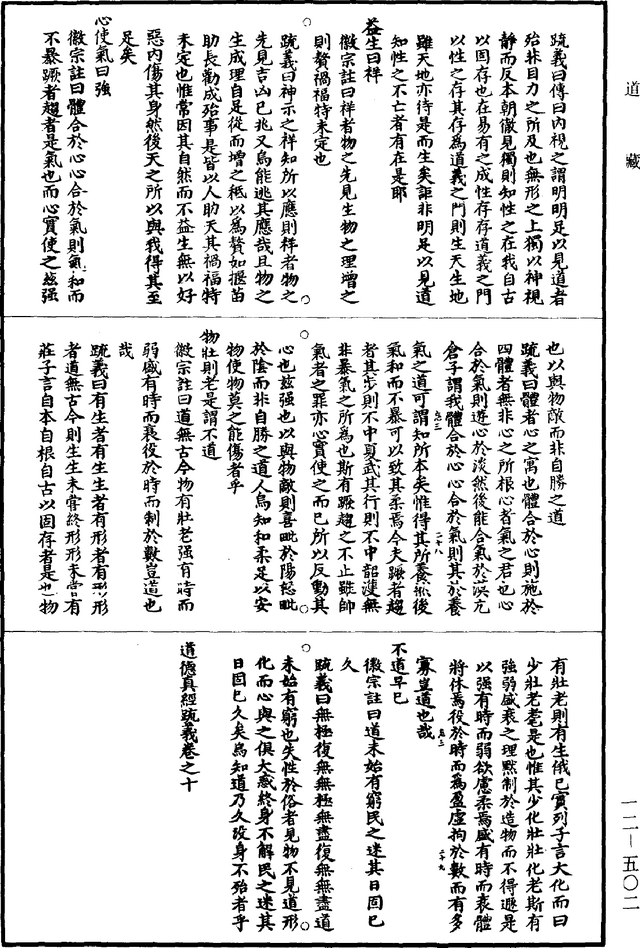 道藏
疏義曰傳曰内視之謂明明足以見道者
殆非目力之所及也無形之上獨以神視
靜而反本朝徹見獨則知性之在我自古
以固存也在易有之成性存存道義之門
以性之存其存爲道義之門則生天生地
雖天地亦待是而生矣詎非明足以見道
知性之不亡者有在是耶
益生曰祥
徽宗註曰祥者物之先見生物之理增之
則贅禍福特未定也
疏義曰神示之祥知所以應則祥者物之
先見吉凶已兆又烏能逃其應哉且物之
生成理自足從而增之秪以爲贅如揠苗
助長勸成殆事是皆以人助天其禍福特
未定也惟常因其自然而不益生無以好
惡内傷其身然後天之所以與我得其至
足矣
心使氣曰強
徽宗註曰體合於心心合於氣則氣和而
不暴蹶者趨者是氣也而心實使之兹強
也以與物敵而非自勝之道
疏義曰體者心之寓也體合於心則施於
四體者無非心之所根心者氣之君也心
合於氣則遊心於淡然後能合氣於漠亢
倉子謂我體合於心心合於氣則其於養
氣之道可謂知所本矣惟得其所養然後
氣和而不暴可以致其柔焉今夫蹶者趨
者其步則不中夏武其行則不中韶濩無
非暴氣之所爲也斯有蹶趨之不止雖帥
氣者之罪亦心實使之而已所以反動其
心也兹强也以與物敵則喜毗於陽怒毗
於陰而非自勝之道人烏知和柔足以安
物使物莫之能傷者乎
物壯則老是謂不道
徽宗註曰道無古今物有壯老强有時而
弱盛有時而衰役於時而制於數豈道也
哉
疏義曰有生者有生生者有形者有形形
者道無古今則生生未嘗終形形未嘗有
莊子言自本自根自古以固存者是也物
有壯老則有生俄已實列子言大化而曰
少壯老耄是也惟其少化壯壯化老斯有
強弱盛衰之理黙制於造物而不得遯是
以强有時而弱欲慮柔焉盛有時而衰體
將休焉役於時而爲盈虚拘於數而有多
寡豈道也哉
不道早已
徽宗註曰道未始有窮民之迷其日固已
久
疏義曰無極復無無極無盡復無無盡道
未始有窮也失性於俗者見物不見道形
化而心與之俱大惑終身不解民之迷其
日固已久矣烏知道乃久没身不殆者乎
道德真經疏義卷之十
一二-五〇二